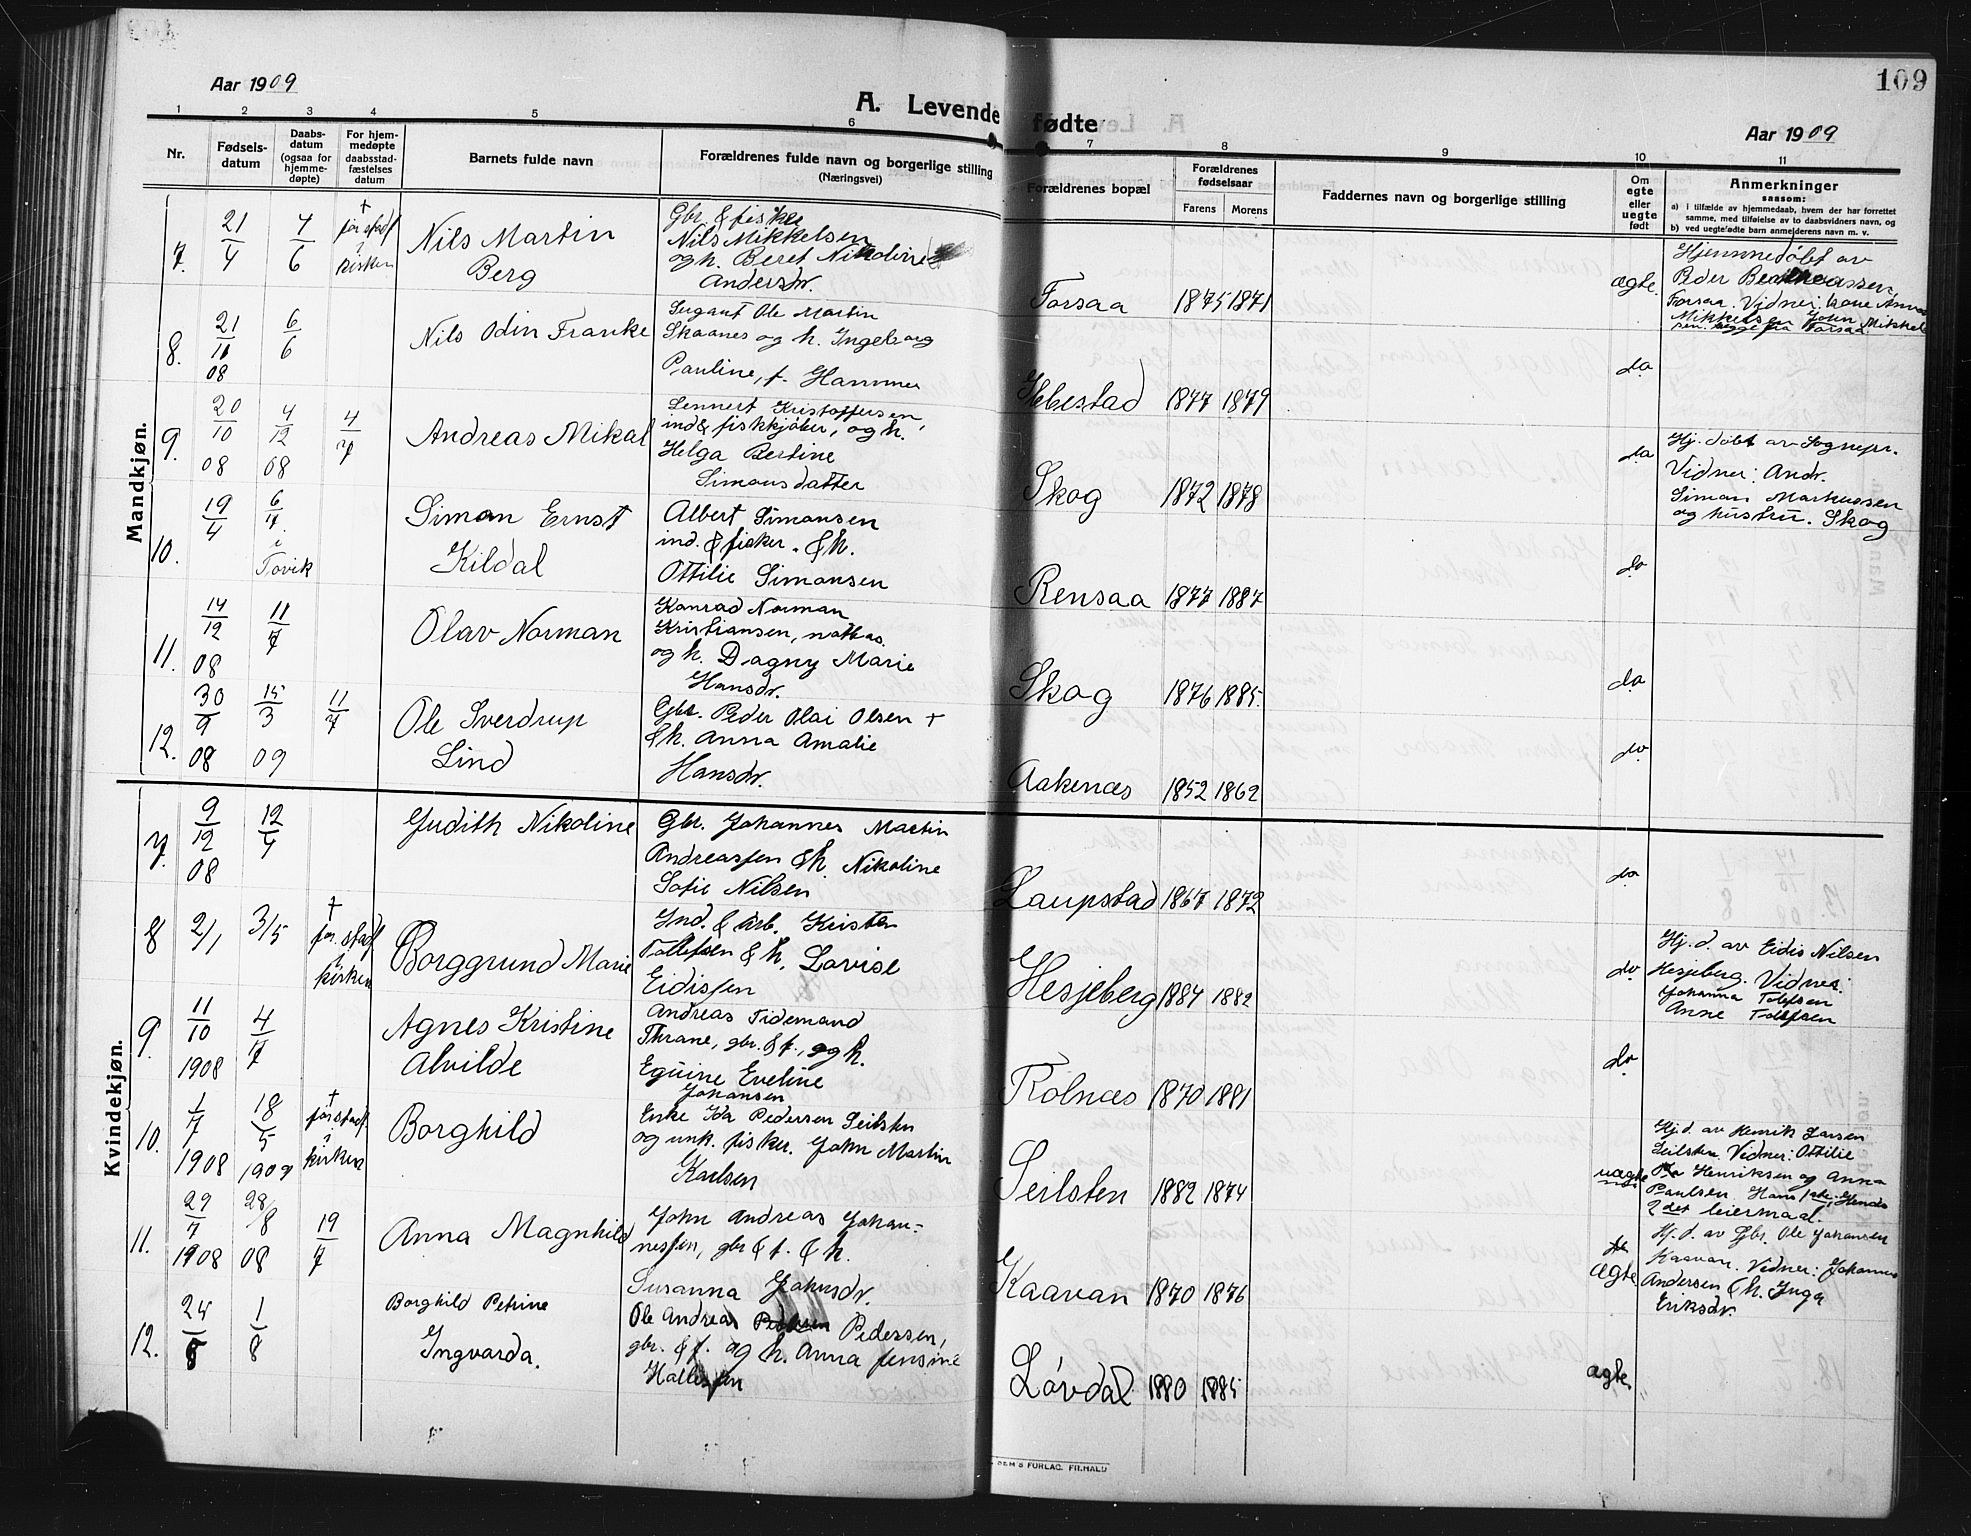 109
Aar 1909
A. Levende fødte
Aar 1909
1 2 3 4 5 6 7 8 9 10 11
Nr.
Fødsels-
datum
Daabs-
datum
(ogsaa for
hjemme-
døpte)
For hjem-
medøpte
daabsstad-
fæstelses
datum
Barnets fulde navn
Forældrenes fulde navn og borgerlige stilling
(Næringsvei)
Forældrenes bopæl
Forældrenes
fødselsaar
Farens Morens
Faddernes navn og borgerlige stilling
Om
egte
eller
uegte
født
Anmerkninger
saasom:
a) i tilfælde av hjemmedaab, hvem der har forrettet
samme, med tilføielse av to daabsvidners navn, og
b) ved uegtefødte barn anmelderens navn m. v.
Mandkjøn.
7. 21/4 4/6 + før stadf. i kirken
Nils Martin
Berg
Gbr. & fisker
Nils Mikkelsen
og h. Beret Nikoline
Andersdr.
Forsaa 1875 1871 ægte.
Hjemmedøbt av
Peder
Forsaa. Vidner:
Mikkelsen John Mikkel
sen. begge fra Forsaa.
8. 21/11 08 6/6
Nils Odin Franke
Sugant Ole Martin
Skaanes og h. Ingeborg
Pauline, f. Hammer
Ibbestad 1877 1879 do
9. 20/10 08 4/12 08 4/7
Andreas Mikal
Lennert Kristoffersen,
ind & fiskkjøber, og h.
Helga Bertine
Simonsdatter
Skog 1872 1878 do
Hj. døbt av Sognepr.
Vidner: Andr.
Simon Markussen
og hustru. Skog
10. 19/4 6/7 i Tovik
Simon Ernst
Kildal
Albert Simonsen
ind. & fisker. & h.
Ottilie Simonsen
Rensaa 1877 1887 do
11. 14/12 08 11/7
Olav Norman
Konrad Norman
Kristiansen,
og h. Dagny Marie
Hansdr.
Skog 1876 1885. do
12. 30/9 08 15/3 09 11/7
Ole Sverdrup
Lind
Gbr. Peder Olai Olsen +
& h. Anna Amalie
Hansdr.
Aakenæs 1852 1862 do
Kvindekjøn.
7. 9/12 08 12/4
Judith Nikoline
Gbr. Johannes Martin
Andreassen & h. Nikoline
Sofie Nilsen
Laupstad 1867 1872 do
8 2/1 3/5 + før. stadf i kirken
Borggrund Marie
Ind. & Arb. Kristen
Tollefsen & h. Lovise
Eidissen
Hesjeberg 1884 1882 do
Hj. d. av Eidis Nilsen
Hesjeberg. Vidner:
Johanna Tollefsen
Anne Tollefsen
9. 11/10 1908 4/7
Agnes Kristine
Alvilde
Andreas Tidemand
Thrane, gbr. & f., og h.
Eguine Eveline
Johansen
Rolnæs 1870 1881 do
10. 1/7 1908 18/5 1909 + før stadf. i kirken
Borghild
Enke Ida Pedersen Seilsten
og unk. fisker. John Martin
Karlsen
Seilsten 1882 1874 uægte
Hj. d. av Henrik Larsen
Seilsten. Vidner: Ottilie
Henriksen og Anna
Paulsen. Hans 1ste, Hendes
2det leiermaal.
11. 29/7 1908 28/8 08 19/7
Anna Magnhild
John Andreas Johan-
nessen, gbr & f. & h.
Susanna Johnsdr.
Kaavan 1870 1876 ægte
Hj. d. av Gbr. Ole Johansen
Kaavan. Vidner: Johannes
Andersen & h. Inga
Eriksdr.
12. 24/5 1/8
Borghild Petrine
Ingvarda.
Ole Andreas Pedersen,
gbr. & f. og h. Anna Jensine
Løvdal 1880 1885 ægte.
SEM'S FORLAG. FR.HALD